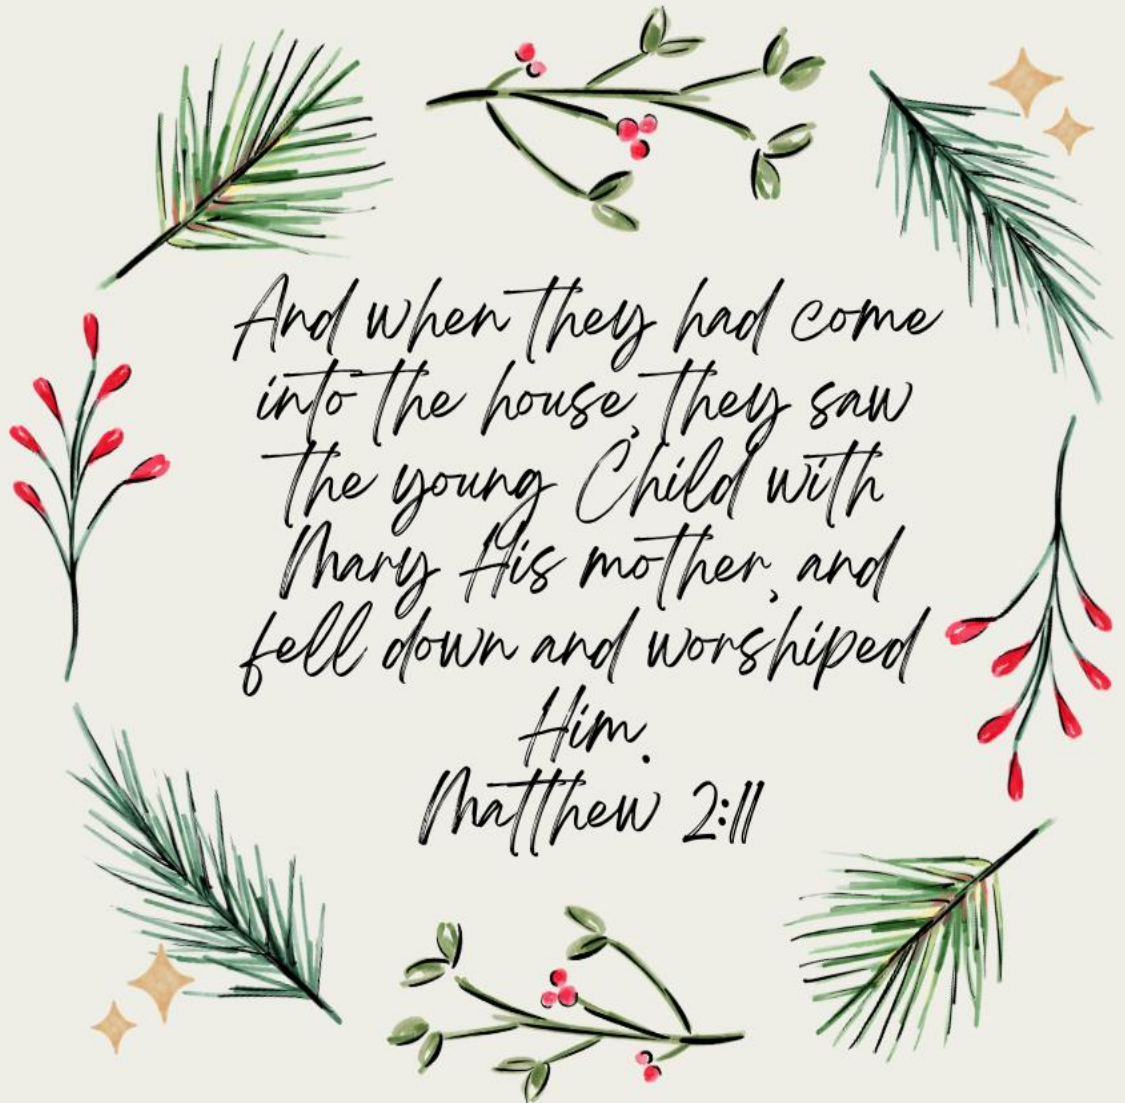 And when they had come
into the house, they saw
the young Child with
Mary His mother, and
fell down and worshiped
Him.
Matthew 2:11